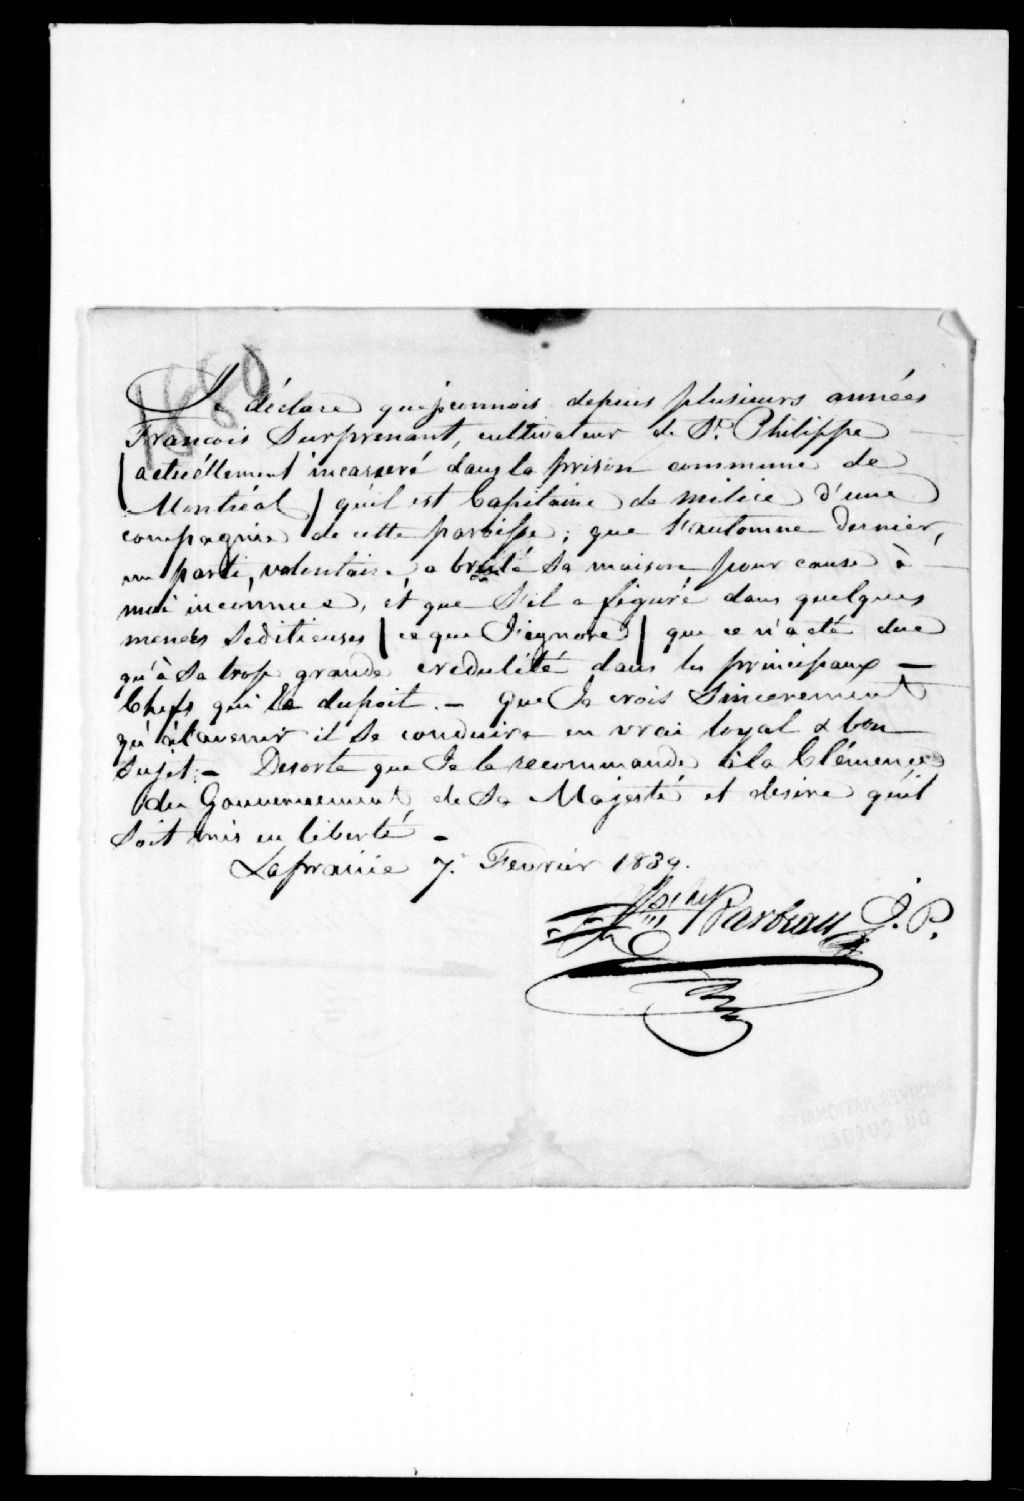 1880
Je déclare que je connois depuis plusieurs années
François Surprenant, cultivateur de St. Philippe
(actuellement incarseré dans la prison commune de
Montréal) qu'il est Capitaine de milice d'une
compagnie de cette paroisse; que l'automne dernier,
un parti volontaire a brulé sa maison pour cause à
moi inconnue, et que s'il a figuré dans quelques
menées séditieuses (ce que J'ignore) que ce n'a été due
qu'à sa trop grande crédulité dans les principaux -
Chefs qui le dupoit. - que Je crois sincerement
qu'à l'avenir il se conduira en vrai loyal & bon
sujet. - Desorte que Je le recommande à la Clémence
du Gouvernement de Sa Majesté et désire qu'il
soit mis en liberté -
Laprairie 7. Fevrier 1839.
Barbeau J. P.
ARCHIVES NATIONALES
DU QUÉBEC